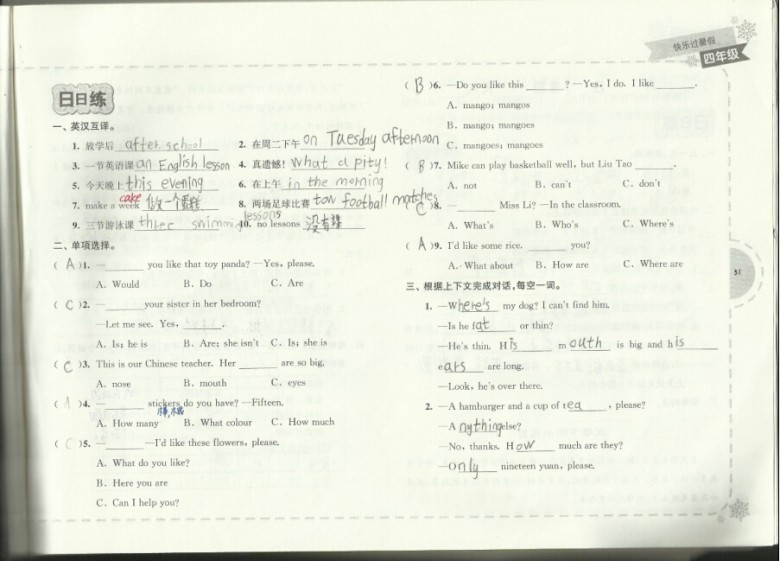 快乐过暑假
四年级
日日练
一、英汉互译。
1. 放学后 after school 2. 在周二下午 on Tuesday afternoon
3. 一节英语课 an English lesson 4. 真遗憾! What a pity!
5. 今天晚上 this evening 6. 在上午 in the morning
7. make a week cake 做一个蛋糕 8. 两场足球比赛 tow football matches
9. 三节游泳课 three swimming lessons 10. no lessons 没有课
二、单项选择。
( A )1. —______ you like that toy panda? —Yes, please.
A. Would B. Do C. Are
( C )2. —______ your sister in her bedroom?
—Let me see. Yes, ______.
A. Is; he is B. Are; she isn't C. Is; she is
( C )3. This is our Chinese teacher. Her ______ are so big.
A. nose B. mouth C. eyes
( A )4. —______ stickers do you have? —Fifteen.
A. How many B. What colour C. How much
( C )5. —______ —I'd like these flowers, please.
A. What do you like?
B. Here you are
C. Can I help you?
( B )6. —Do you like this ______? —Yes, I do. I like ______.
A. mango; mangos
B. mango; mangoes
C. mangoes; mangoes
( B )7. Mike can play basketball well, but Liu Tao ______.
A. not B. can't C. don't
( C )8. —______ Miss Li? —In the classroom.
A. What's B. Who's C. Where's
( A )9. I'd like some rice. ______ you?
A. What about B. How are C. Where are
三、根据上下文完成对话,每空一词。
1. —Where's my dog? I can't find him.
—Is he fat or thin?
—He's thin. His mouth is big and his
ears are long.
—Look, he's over there.
2. —A hamburger and a cup of tea, please?
—Anything else?
—No, thanks. How much are they?
—Only nineteen yuan, please.
51